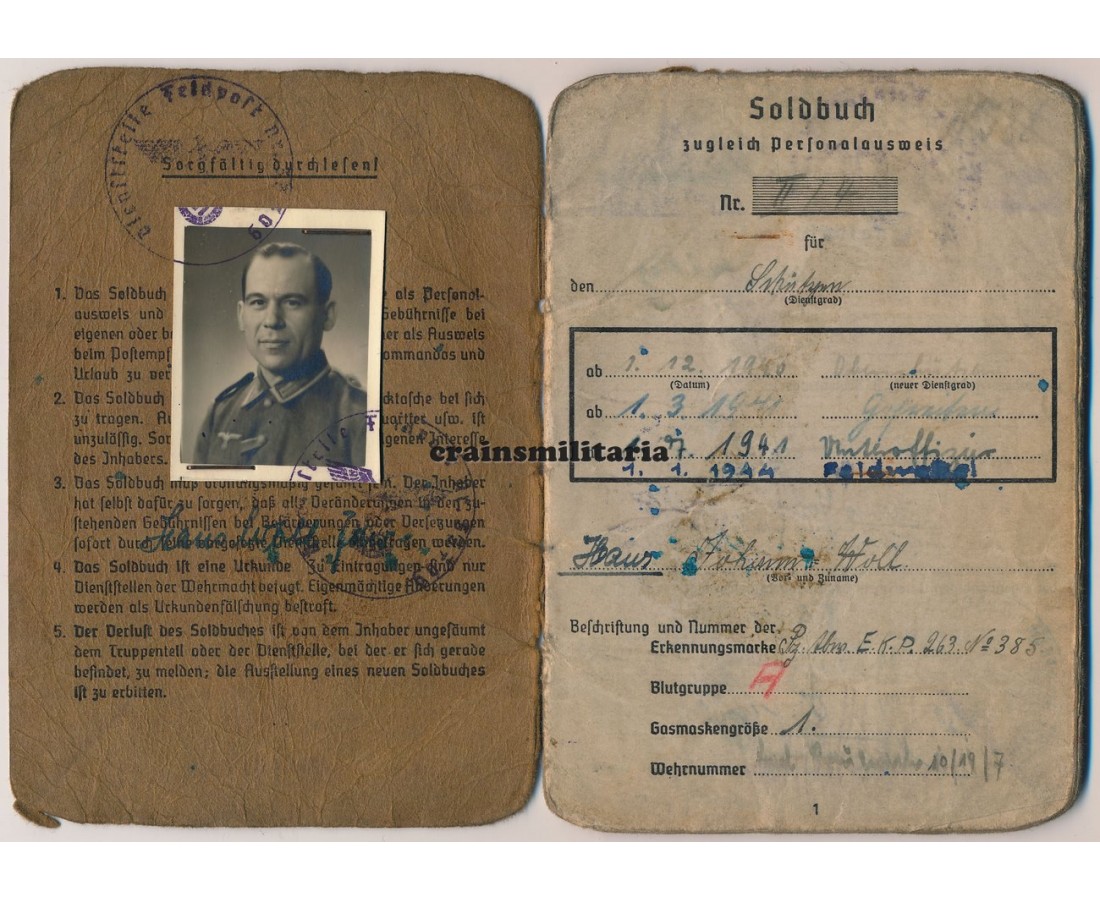 Dienststelle Feldpost Nr.
Sorgfältig durchlesen!
1. Das Soldbuch als Personal-
ausweis und Gebührnisse bei
eigenen oder als Ausweis
beim Postempf ommandos und
Urlaub zu ver
2. Das Soldbuch cktasche bei sich
zu tragen. uartier usw. ist
unzulässig. Sor igenen Interesse
des Inhabers.
3. Das Soldbuch muß ordnungsmäßig geführt sein. Der Inhaber
hat selbst dafür zu sorgen, daß alle Veränderungen in den zu-
stehenden Gebührnissen bei Beförderungen oder Versetzungen
sofort durch seine vorgesetzte Dienststelle eingetragen werden.
4. Das Soldbuch ist eine Urkunde. Zu Eintragungen sind nur
Dienststellen der Wehrmacht befugt. Eigenmächtige Änderungen
werden als Urkundenfälschung bestraft.
5. Der Verlust des Soldbuches ist von dem Inhaber ungesäumt
dem Truppenteil oder der Dienststelle, bei der er sich gerade
befindet, zu melden; die Ausstellung eines neuen Soldbuches
ist zu erbitten.
crainsmilitaria
Soldbuch
zugleich Personalausweis
Nr. II/4
für
den Schützen
(Dienstgrad)
ab 1. 12. 1940
(Datum) (neuer Dienstgrad)
ab 1. 3. 1941 Gefreiten
1941 Unteroffizier
1. 1. 1944 Feldwebel
Hans Johann Woll.
(Vor- und Zuname)
Beschriftung und Nummer der
Erkennungsmarke Pz. Abw. E.K.P. 263 № 385
Blutgruppe A
Gasmaskengröße 1.
Wehrnummer 10/19/7
1